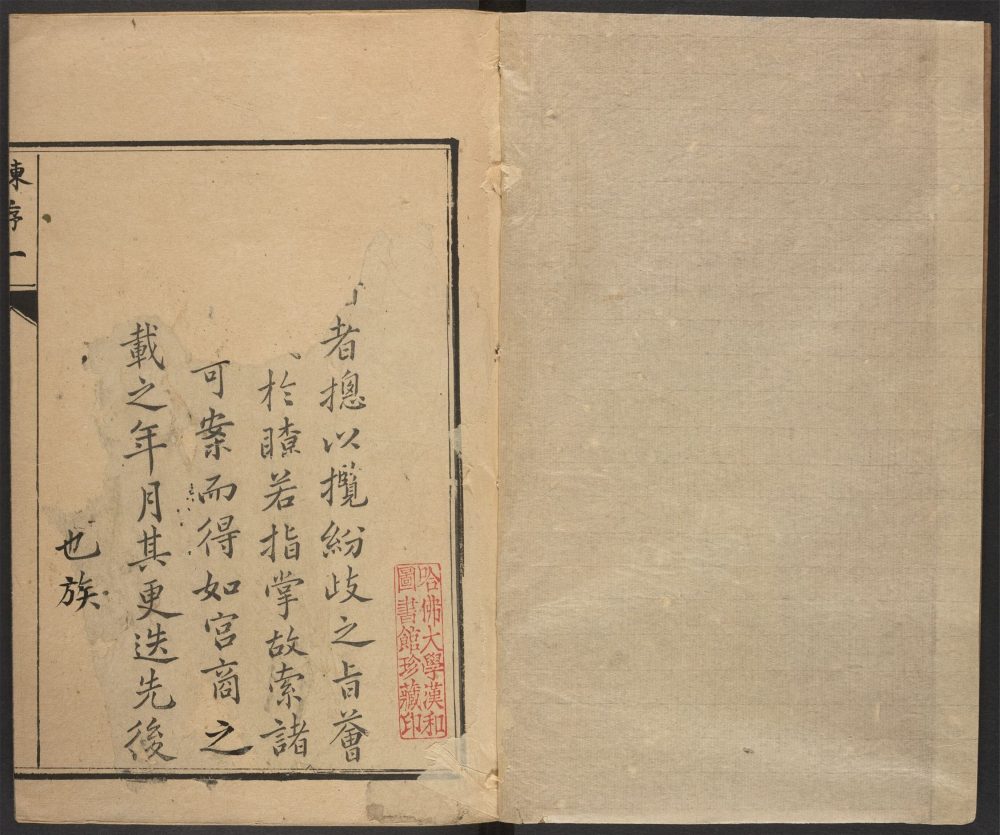 哈佛大學漢和
圖書館珍藏印
者摠以攬紛歧之旨薈
於瞭若指掌故索諸
可案而得如宮商之
載之年月其更迭先後
也族
陳序一